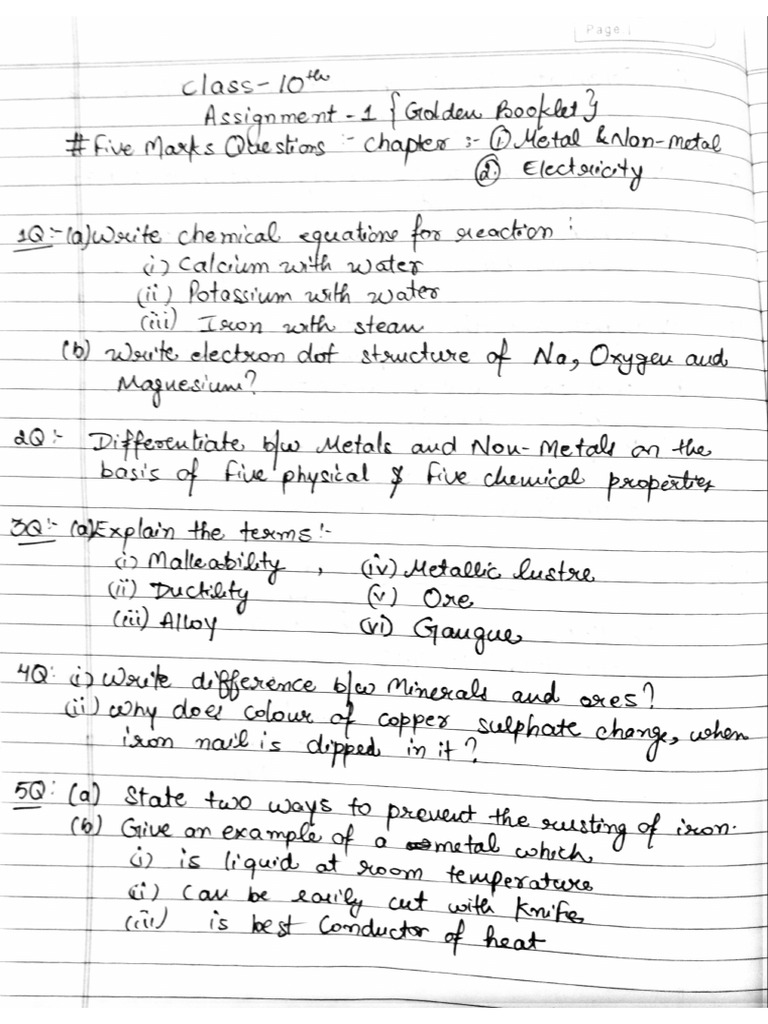 Page
Class-10th
Assignment-1 {Golden Booklet}
# Five Marks Questions :- Chapter :- ① Metal & Non-metal
② Electricity
1Q:-(a) Write chemical equations for reaction :
(i) Calcium with water
(ii) Potassium with water
(iii) Iron with steam
(b) Write electron dot structure of Na, Oxygen and
Magnesium?
2Q:- Differentiate b/w Metals and Non-Metals on the
basis of five physical & five chemical properties
3Q:- (a) Explain the terms:-
(i) Malleability , (iv) Metallic lustre
(ii) Ductility (v) Ore
(iii) Alloy (vi) Gangue
4Q: i) Write difference b/w Minerals and ores?
(ii) Why does colour of copper sulphate change, when
iron nail is dipped in it?
5Q: (a) State two ways to prevent the rusting of iron.
(b) Give an example of a metal which
(i) is liquid at room temperature
(ii) can be easily cut with knife
(iii) is best Conductor of heat